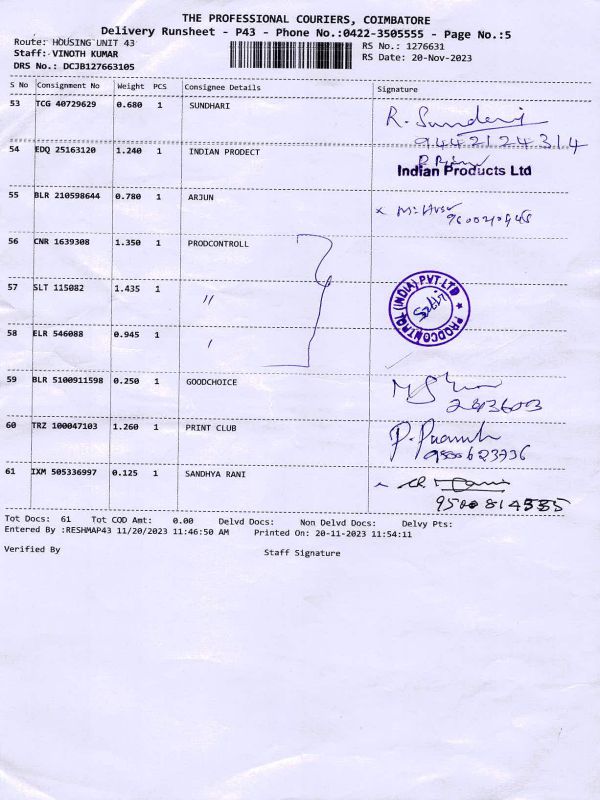 THE PROFESSIONAL COURIERS, COIMBATORE
Delivery Runsheet - P43 - Phone No.:0422-3505555 - Page No.:5
Route: HOUSING UNIT 43 RS No.: 1276631
Staff: VINOTH KUMAR RS Date: 20-Nov-2023
DRS No.: DCJB127663105
S No Consignment No Weight PCS Consignee Details Signature
53 TCG 40729629 0.680 1 SUNDHARI R. Sunderi
9442124314
54 EDQ 25163120 1.240 1 INDIAN PRODECT
Indian Products Ltd
55 BLR 210598644 0.780 1 ARJUN
56 CNR 1639308 1.350 1 PRODCONTROLL
57 SLT 115082 1.435 1 "
PRODCONTROL (INDIA) PVT LTD
58 ELR 546088 0.945 1 '
59 BLR 5100911598 0.250 1 GOODCHOICE
243603
60 TRZ 100047103 1.260 1 PRINT CLUB
9500623736
61 IXM 505336997 0.125 1 SANDHYA RANI
9500814535
Tot Docs: 61 Tot COD Amt: 0.00 Delvd Docs: Non Delvd Docs: Delvy Pts:
Entered By :RESHMAP43 11/20/2023 11:46:50 AM Printed On: 20-11-2023 11:54:11
Verified By Staff Signature